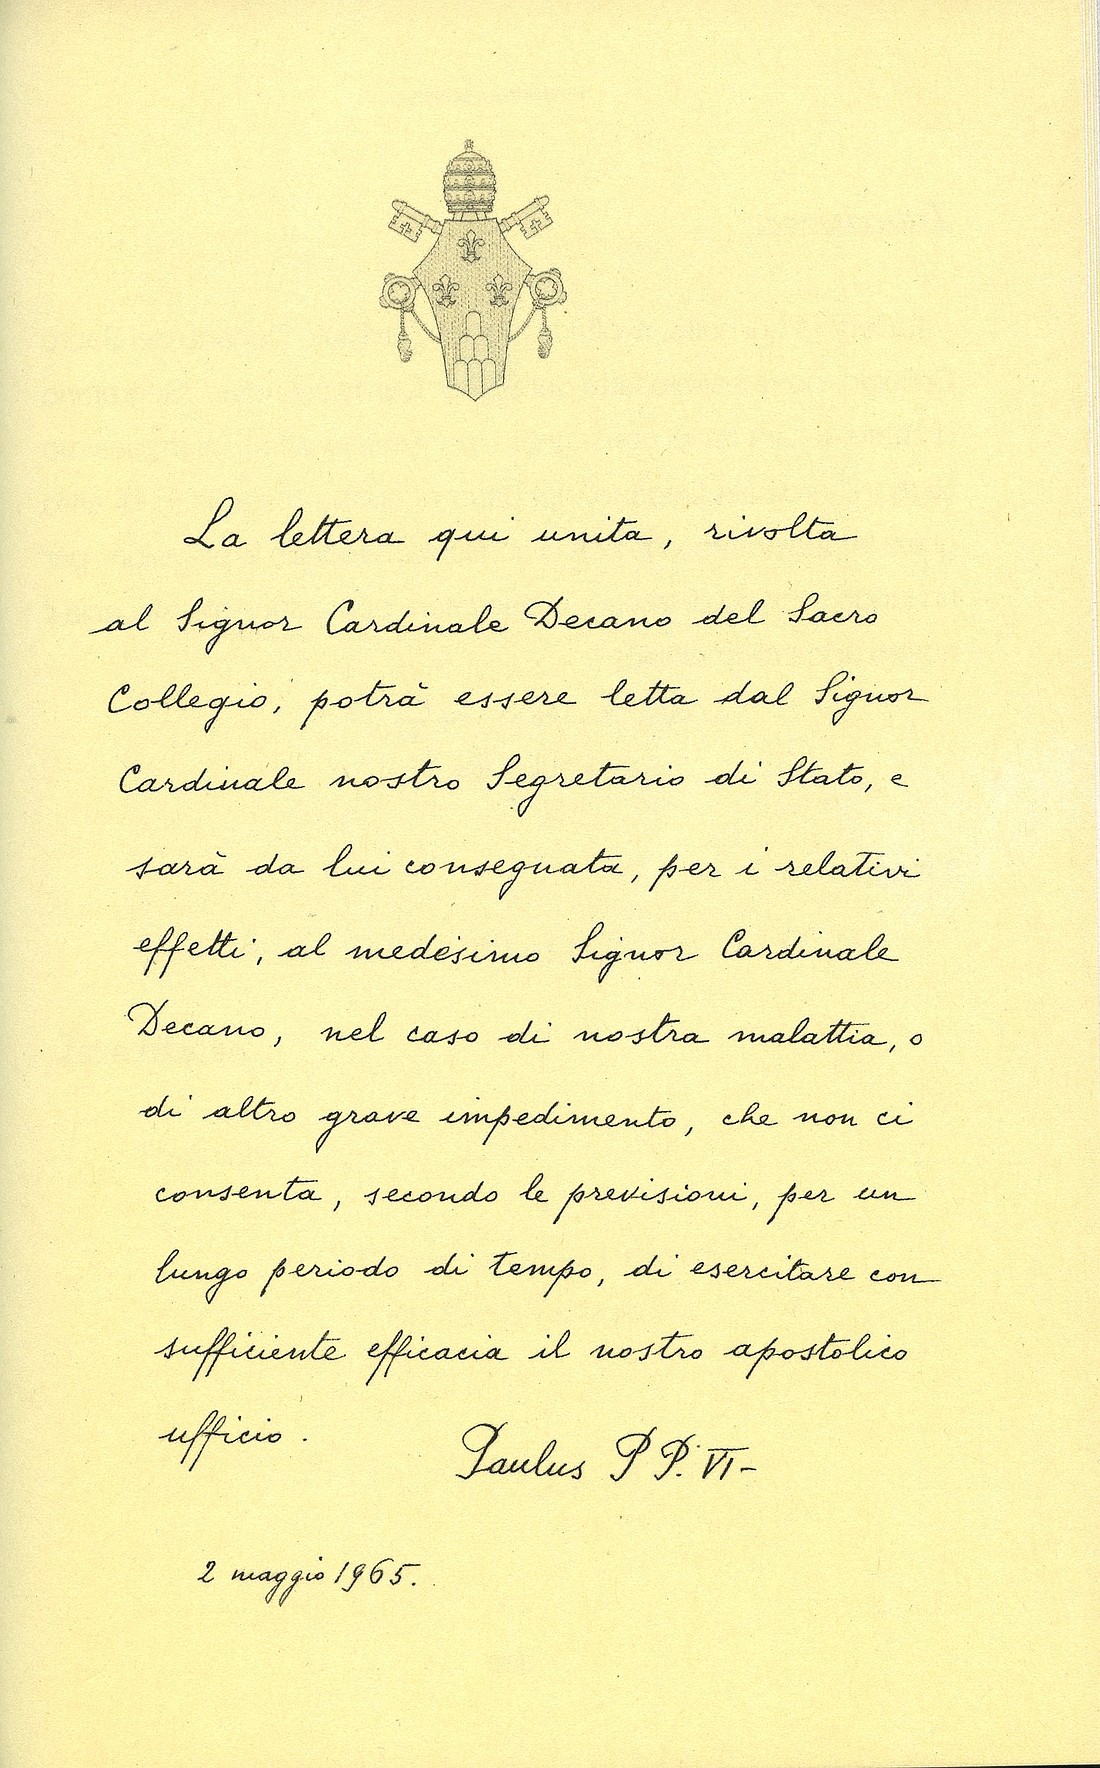 La lettera qui unita, rivolta
al Signor Cardinale Decano del Sacro
Collegio, potrà essere letta dal Signor
Cardinale nostro Segretario di Stato, e
sarà da lui consegnata, per i relativi
effetti, al medesimo Signor Cardinale
Decano, nel caso di nostra malattia, o
di altro grave impedimento, che non ci
consenta, secondo le previsioni, per un
lungo periodo di tempo, di esercitare con
sufficiente efficacia il nostro apostolico
ufficio.
Paulus P P. VI-
2 maggio 1965.